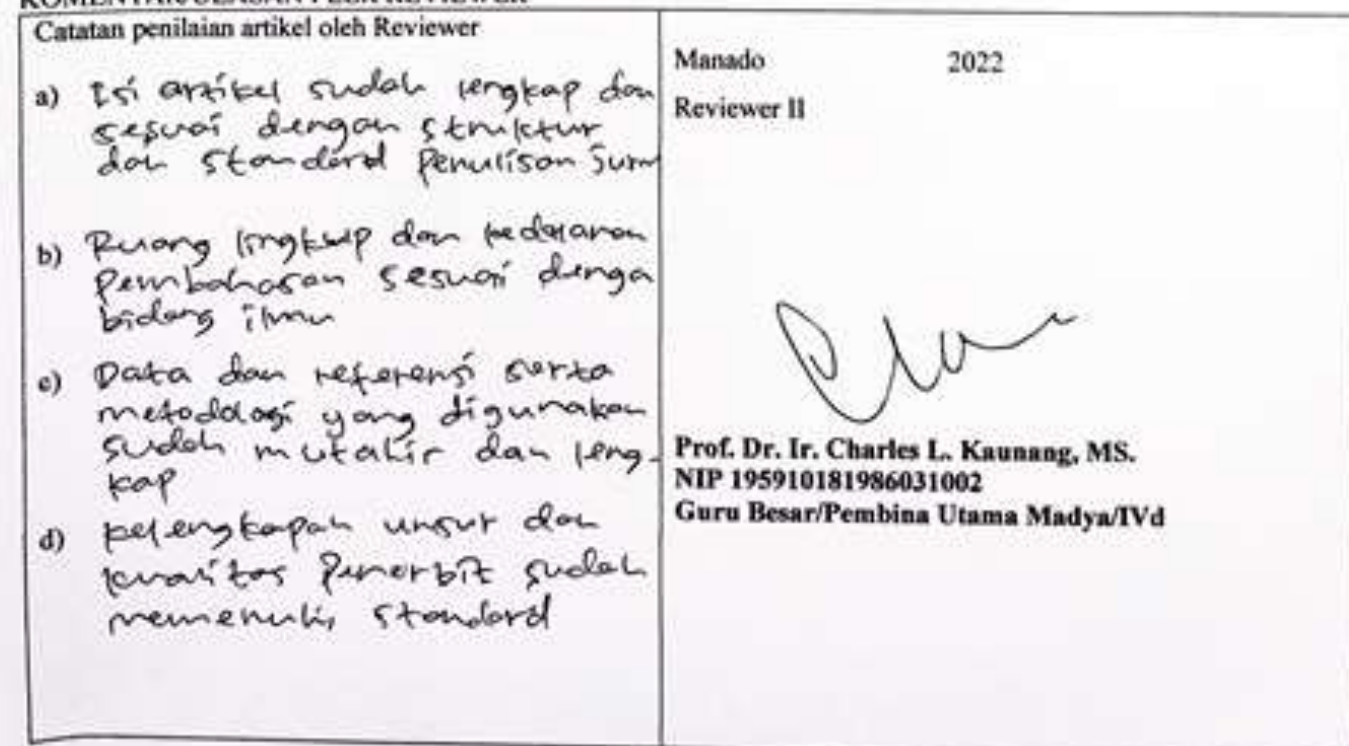 KOMENTAR/ULASAN PEER REVIEWER
Catatan penilaian artikel oleh Reviewer
a) Isi artikel sudah lengkap dan
sesuai dengan struktur
dan standard penulisan jurn
b) Ruang lingkup dan kedalaman
pembahasan sesuai denga
bidang ilmu
c) Data dan referensi serta
metodologi yang digunakan
sudah mutahir dan leng-
kap
d) kelengkapan unsur dan
kualitas Penerbit sudah
memenuhi standard
Manado 2022
Reviewer II
Prof. Dr. Ir. Charles L. Kaunang, MS.
NIP 195910181986031002
Guru Besar/Pembina Utama Madya/IVd